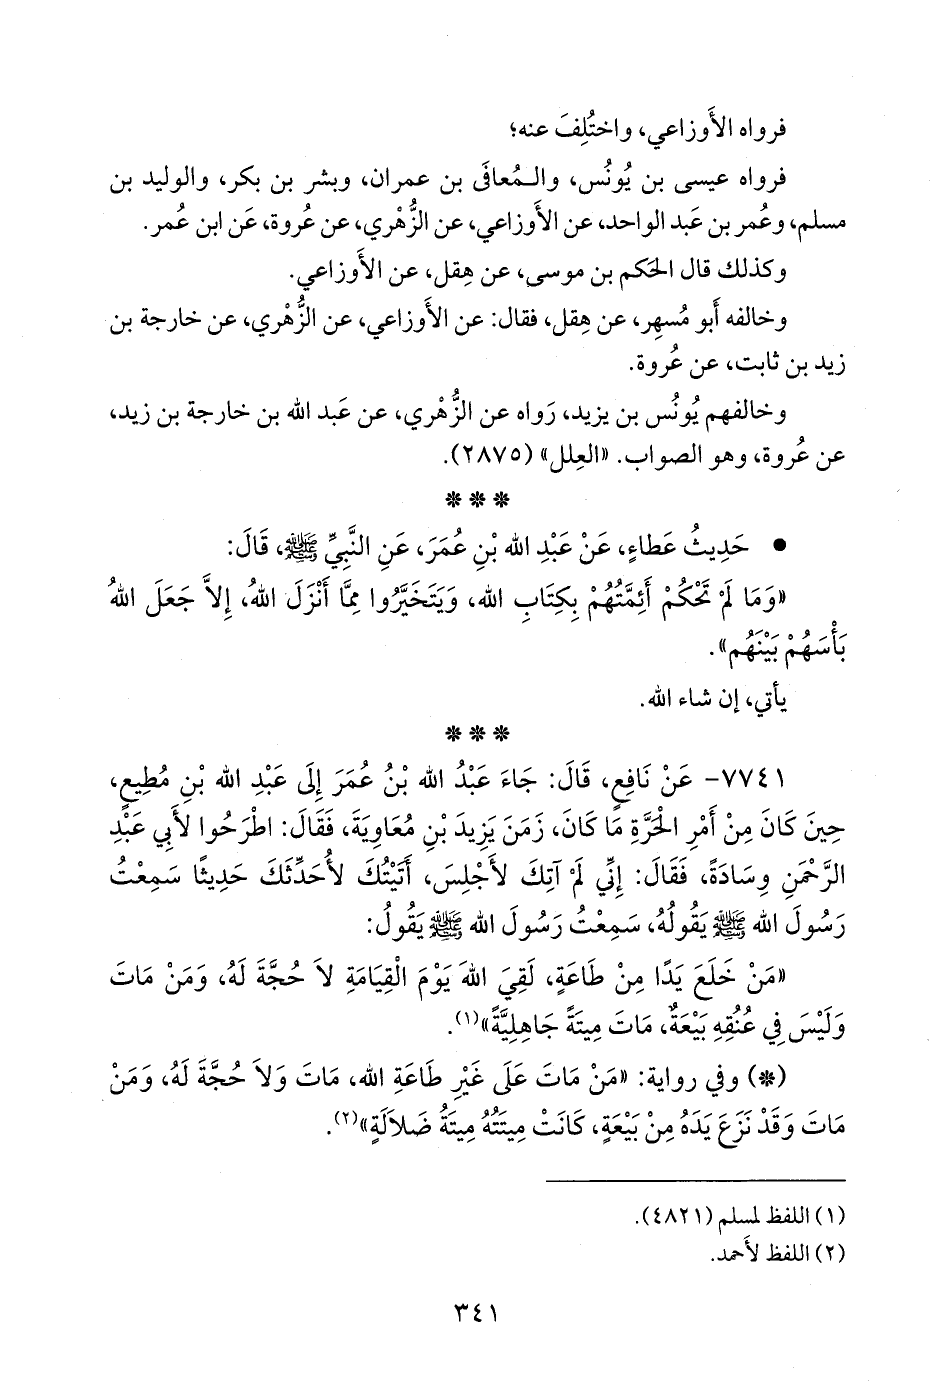 فرواه الأَوزاعي، واختُلِفَ عنه؛
فرواه عيسى بن يُونُس، والـمُعافَى بن عمران، وبشر بن بكر، والوليد بن
مسلم، وعُمر بن عَبد الواحد، عن الأَوزاعي، عن الزُّهْري، عن عُروة، عَن ابن عُمر.
وكذلك قال الحَكم بن موسى، عن هِقل، عن الأَوزاعي.
وخالفه أَبو مُسهِر، عن هِقل، فقال: عن الأَوزاعي، عن الزُّهْري، عن خارجة بن
زيد بن ثابت، عن عُروة.
وخالفهم يُونُس بن يزيد، رَواه عن الزُّهْري، عن عَبد الله بن خارجة بن زيد،
عن عُروة، وهو الصواب. «العِلل» (٢٨٧٥).
* * *
• حَدِيثُ عَطاءٍ، عَنْ عَبْدِ الله بْنِ عُمَرَ، عَنِ النَّبِيِّ ﷺ، قَالَ:
«وَمَا لَمْ تَحْكُمْ أَئِمَّتُهُمْ بِكِتَابِ الله، وَيَتَخَيَّرُوا مِمَّا أَنْزَلَ اللهُ، إِلاَّ جَعَلَ اللهُ
بَأْسَهُمْ بَيْنَهُم».
يأتي، إن شاء الله.
* * *
٧٧٤١- عَنْ نَافِعٍ، قَالَ: جَاءَ عَبْدُ الله بْنُ عُمَرَ إِلَى عَبْدِ الله بْنِ مُطِيعٍ،
حِينَ كَانَ مِنْ أَمْرِ الحَرَّةِ مَا كَانَ، زَمَنَ يَزِيدَ بْنِ مُعَاوِيَةَ، فَقَالَ: اطْرَحُوا لأَبِي عَبْدِ
الرَّحْمَنِ وِسَادَةً، فَقَالَ: إِنِّي لَمْ آتِكَ لأَجْلِسَ، أَتَيْتُكَ لأُحَدِّثَكَ حَدِيثًا سَمِعْتُ
رَسُولَ الله ﷺ يَقُولُهُ، سَمِعْتُ رَسُولَ الله ﷺ يَقُولُ:
«مَنْ خَلَعَ يَدًا مِنْ طَاعَةٍ، لَقِيَ اللهَ يَوْمَ الْقِيَامَةِ لاَ حُجَّةَ لَهُ، وَمَنْ مَاتَ
وَلَيْسَ فِي عُنُقِهِ بَيْعَةٌ، مَاتَ مِيتَةً جَاهِلِيَّةً»(١).
(*) وفي رواية: «مَنْ مَاتَ عَلَى غَيْرِ طَاعَةِ الله، مَاتَ وَلاَ حُجَّةَ لَهُ، وَمَنْ
مَاتَ وَقَدْ نَزَعَ يَدَهُ مِنْ بَيْعَةٍ، كَانَتْ مِيتَتُهُ مِيتَةُ ضَلاَلَةٍ»(٢).
(١) اللفظ لمسلم (٤٨٢١).
(٢) اللفظ لأحمد.
٣٤١